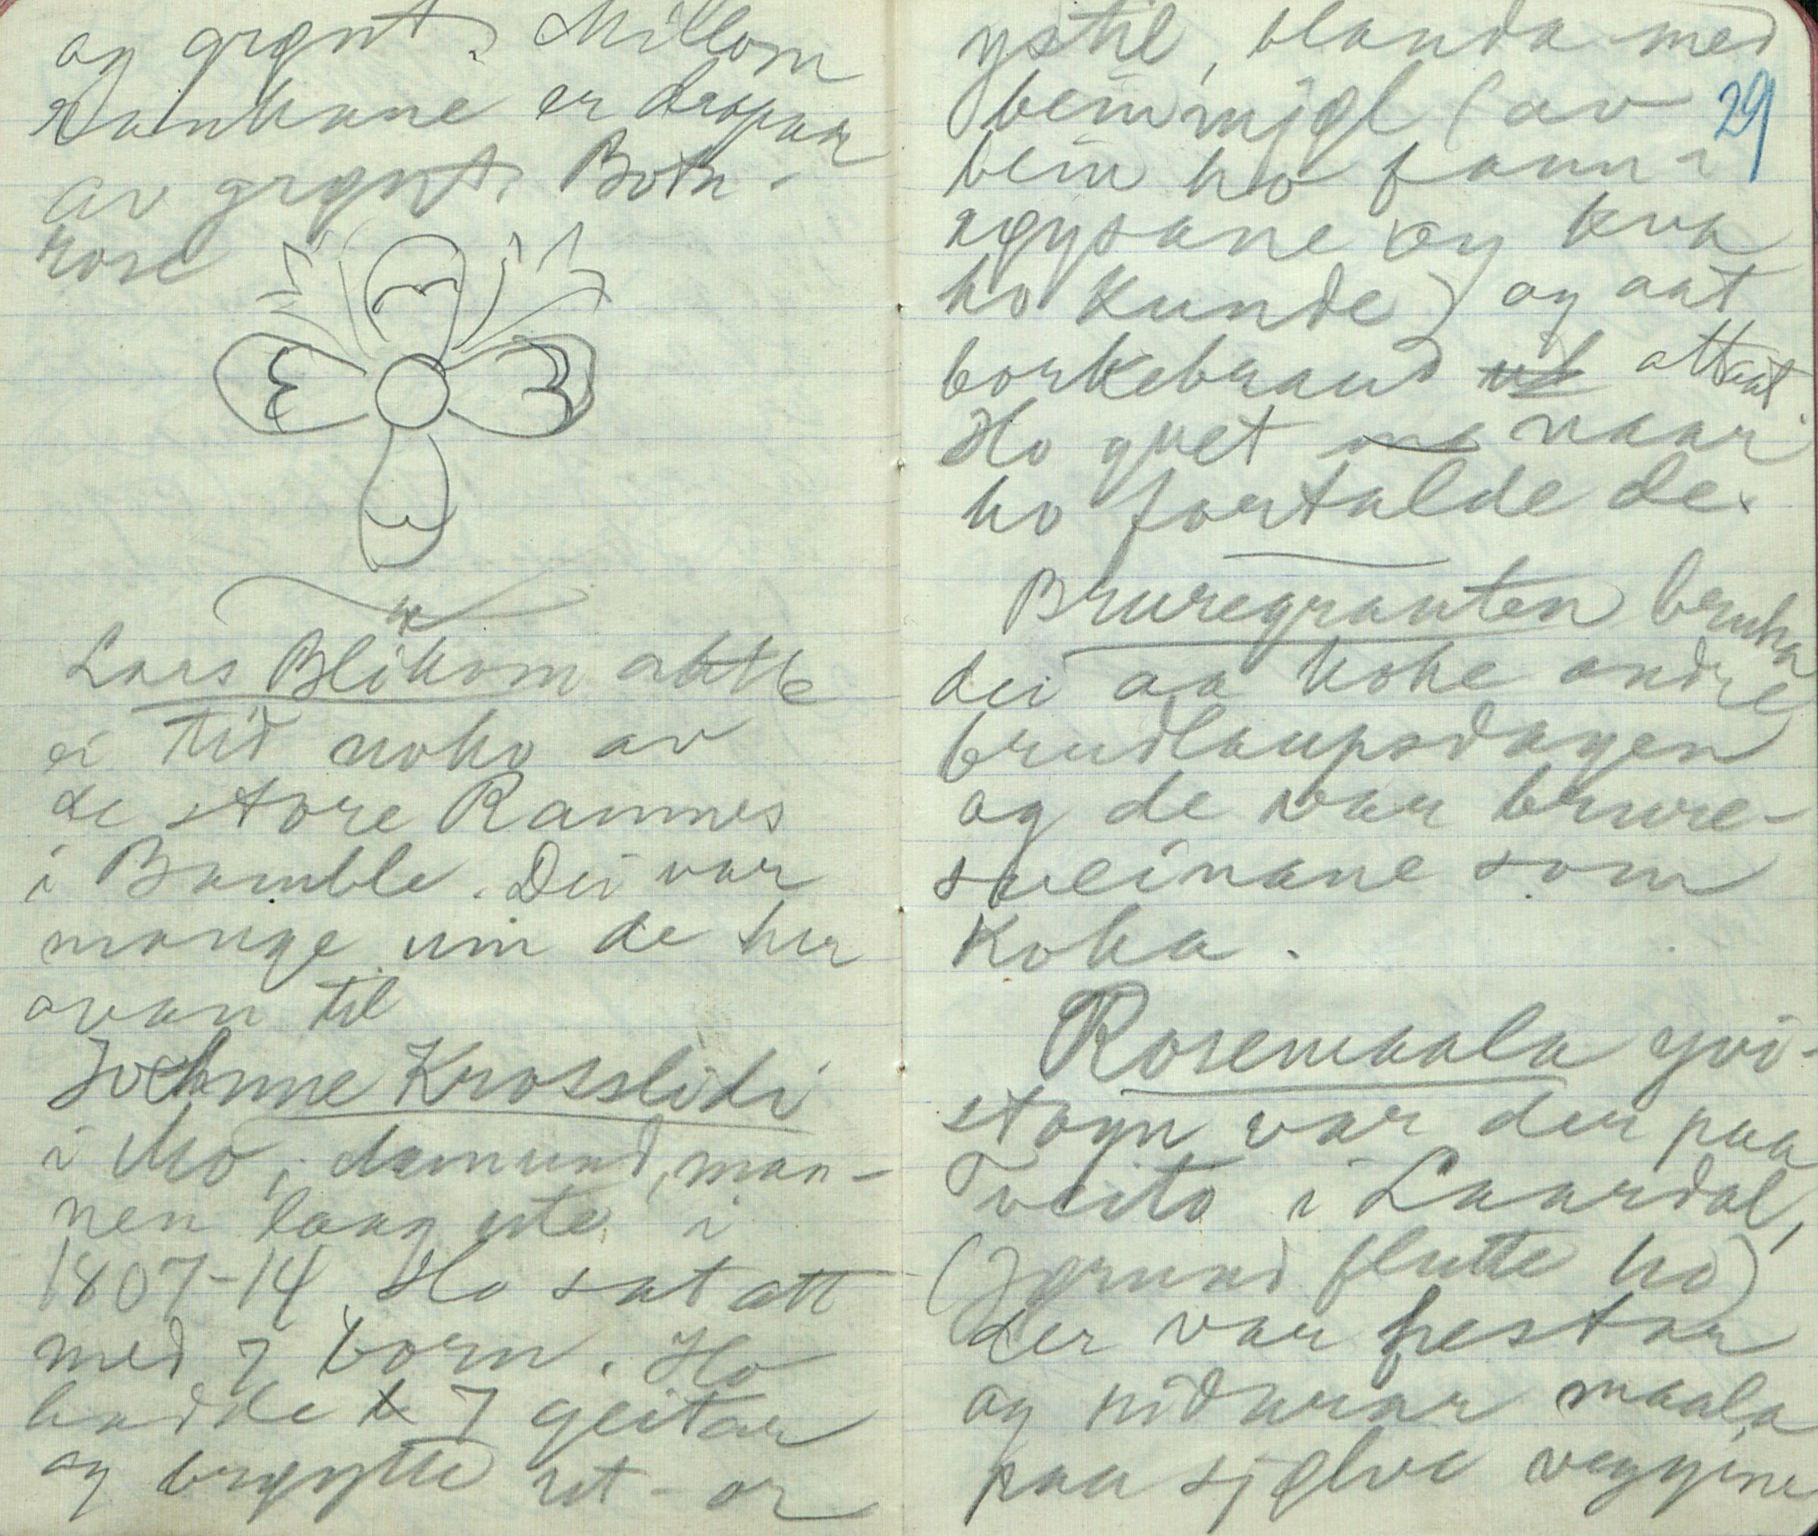 og grønt. Millom
rankane er dropar
av grønt. Botn-
rose
Lars Blikom aatte
ei tid noko av
de store Ramnes
i Bamble. Dei var
mange um de her
ovan til
Johnne Krosslidi
i Mo, Aamund, man-
nen laag ute i
1807-14. Ho sat att
med 7 born. Ho
hadde 7 gjeitar
og brøytte ret-or
ystil, blanda med
beinmjøl (av
bein ho fann i
røysane og kva
ho kunde) og aat
borkebraud attaat.
Ho gret naar
ho fortalde de.
29
Bruregrauten bruka
dei aa koke andre
brudlaupsdagen
og de var brure-
sveinane som
koka.
Rosemaala yvi-
stogn var der paa
Tveito i Laardal,
(Jørund flutte ho)
der var hestar
og ridarar maala
paa sjølve veggine